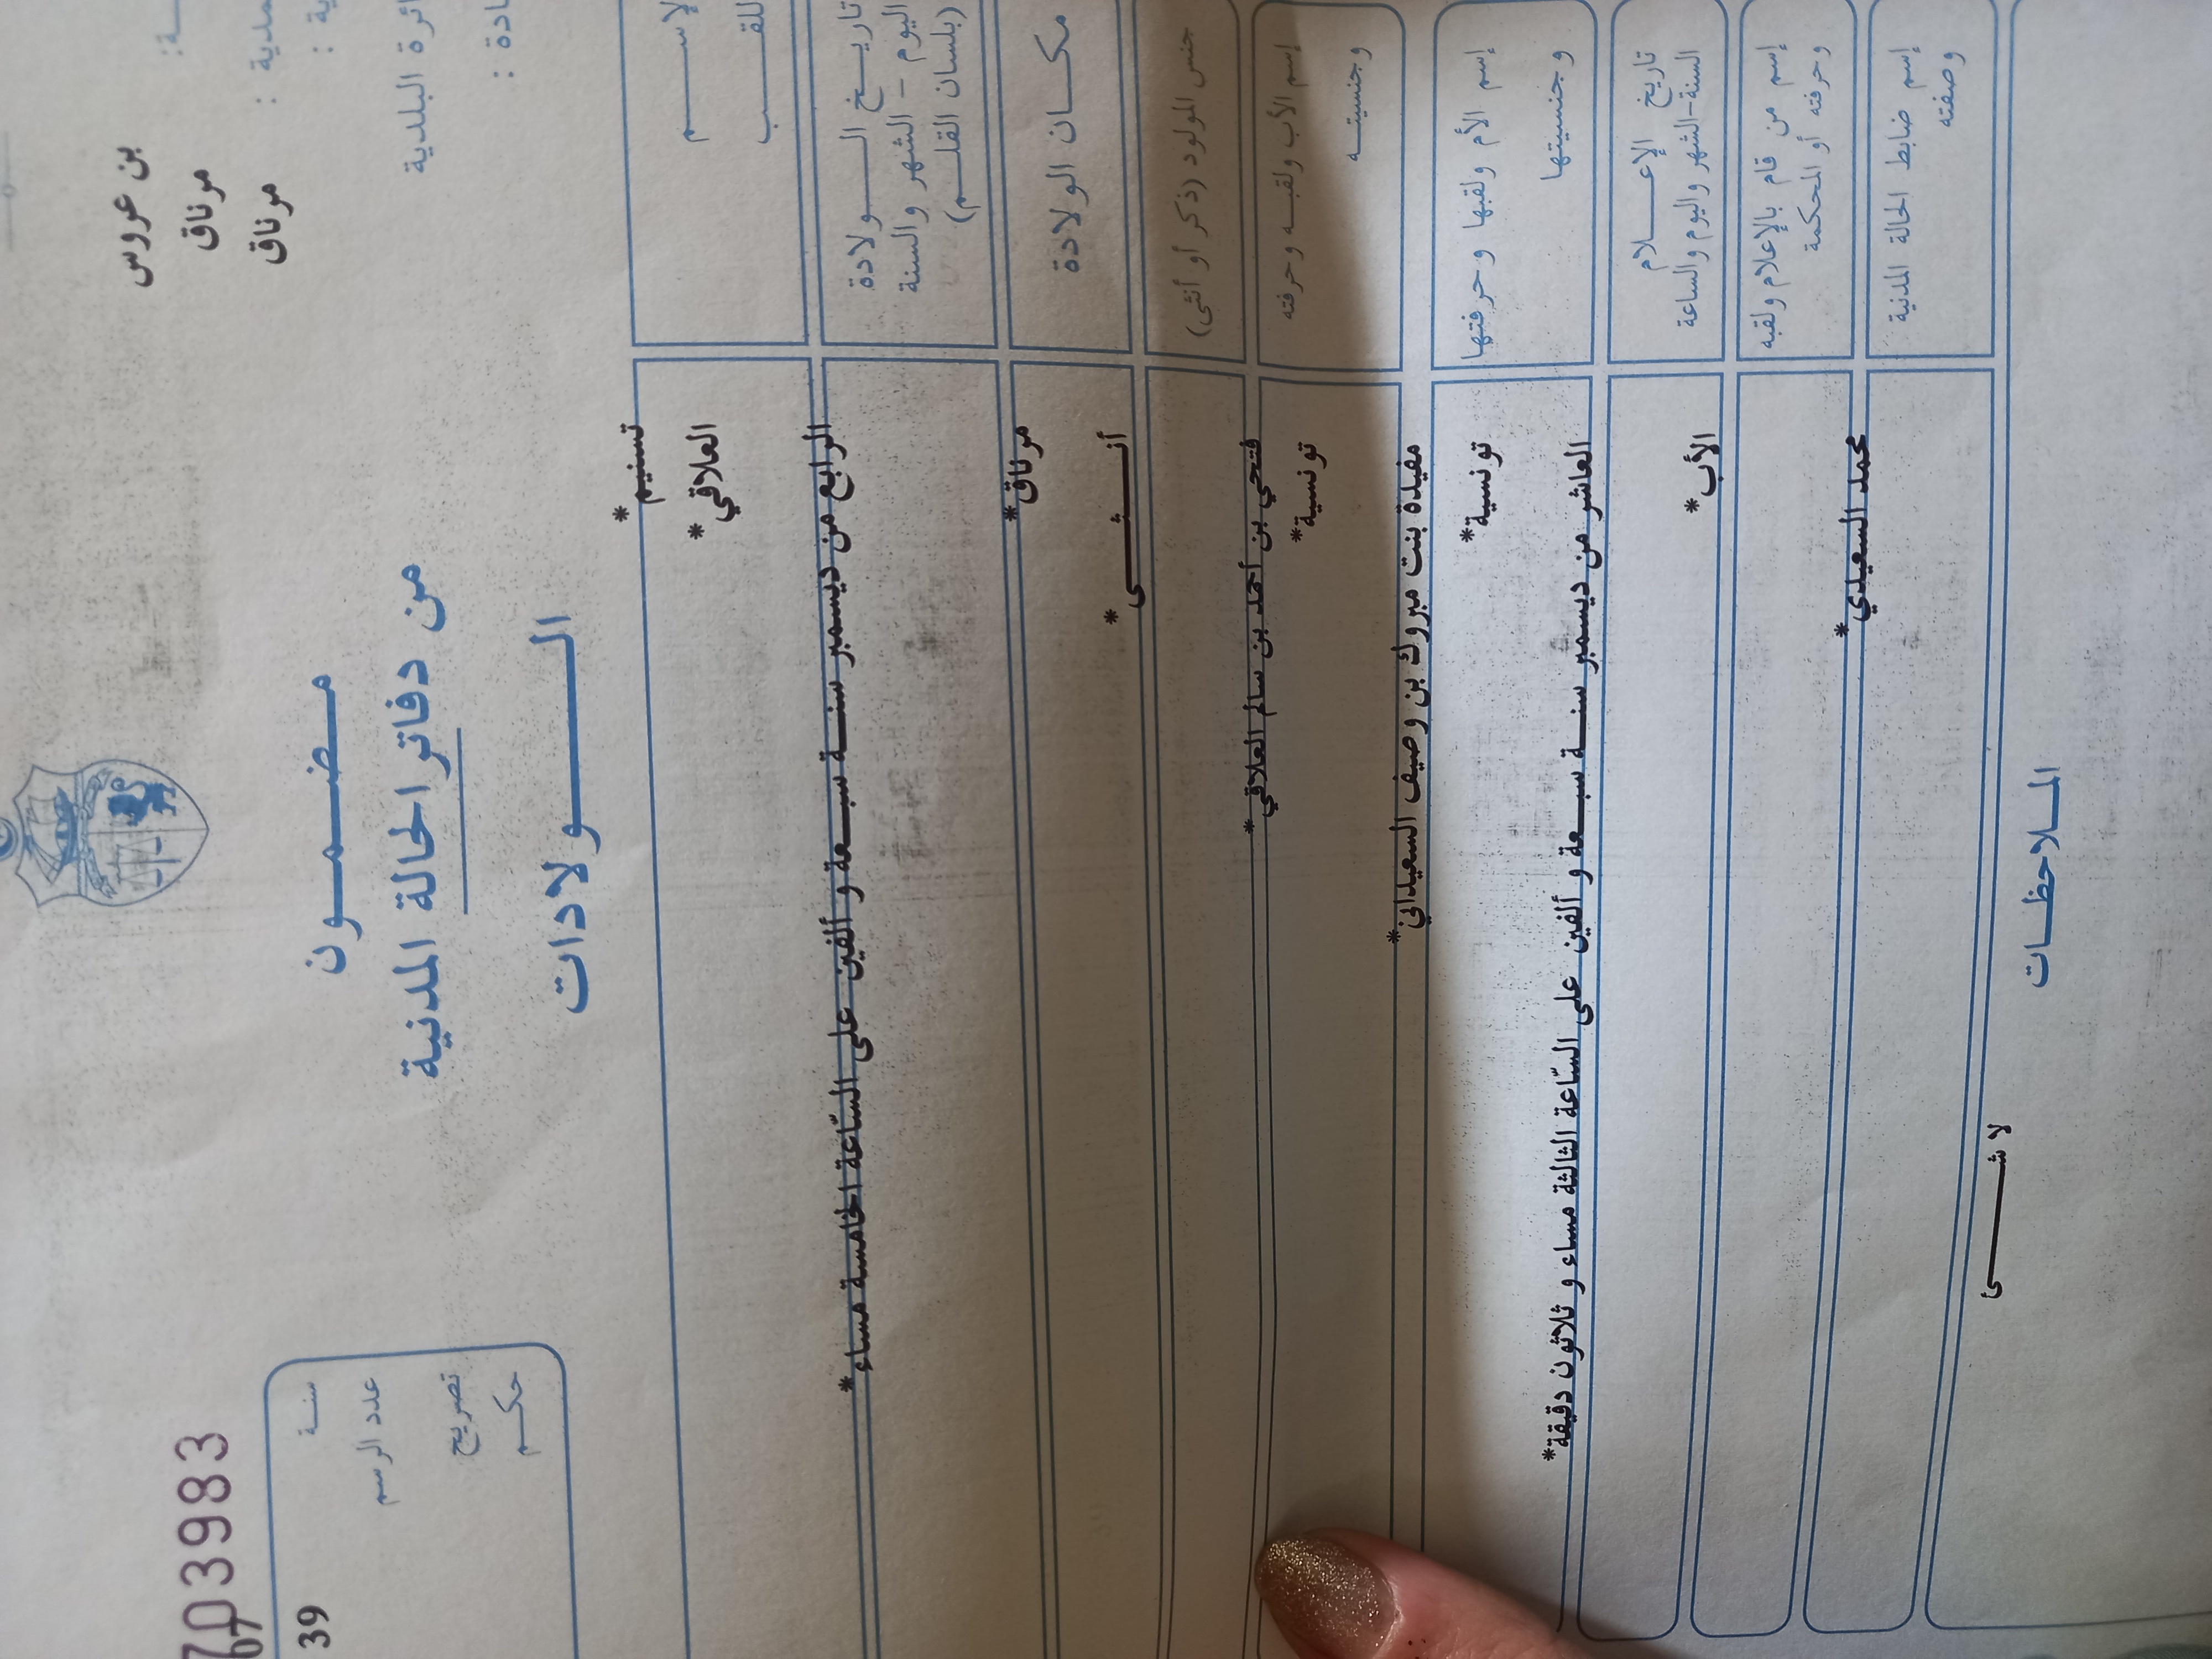 بن عروس
موناق
موناق
مضمون
من دفاتر الحالة المدنية
الولادات
703983
سنة
39
عدد الرسم
تصريح
حكم
الإسم
اللقب
تسنيم*
العلاقي*
تاريخ الولادة
اليوم – الشهر والسنة
(بلسان القلم)
الرابع من ديسمبر سنة سبعة و ألفين على السّاعة الخامسة مساء*
مكان الولادة
موناق*
جنس المولود (ذكر أو أنثى)
أنثى*
إسم الأب ولقبه وحرفته
وجنسيته
فتحي بن أحمد بن سالم العلاقي*
تونسية*
إسم الأم ولقبها وحرفتها
وجنسيتها
مفيدة بنت مبروك بن وصيف السعيداني*
تونسية*
تاريخ الإعلام
السنة-الشهر واليوم والساعة
العاشر من ديسمبر سنة سبعة و ألفين على السّاعة الثالثة مساء و ثلاثون دقيقة*
إسم من قام بالإعلام ولقبه
وحرفته أو المحكمة
الأب*
إسم ضابط الحالة المدنية
وصفته
محمد السعيدي*
الملاحظات
لا شئ